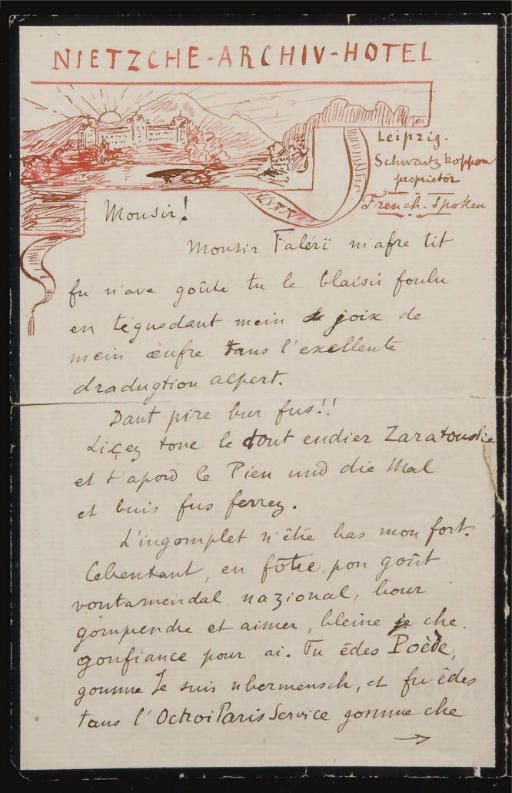 NIETZCHE-ARCHIV-HOTEL
Leipzig.
Schwartzkoppen
proprietör
French-Spoken
LIFT
Monsir!
Monsir Faléri m'afre tit
fu n'ave goûte tu le blaisir foulu
en téguedant mein joix de
mein œufre tans l'exellente
dradugtion alpert.
Dant pire bur fus!!
Liçez toue le tout endier Zaratoustie
et t'apord le Pien und die Mal
et buis fus ferrez.
L'ingomplet n'êtie bas mon fort.
Cebentant, en fôtie pon goût
vontamendal nazional, bour
gomprendre et aimer, bleine che
gonfiance pour ai. Tu êdes Poède,
gomme Je suis ubermensch, et fu êdes
tans l'OctroiParisService gomme che